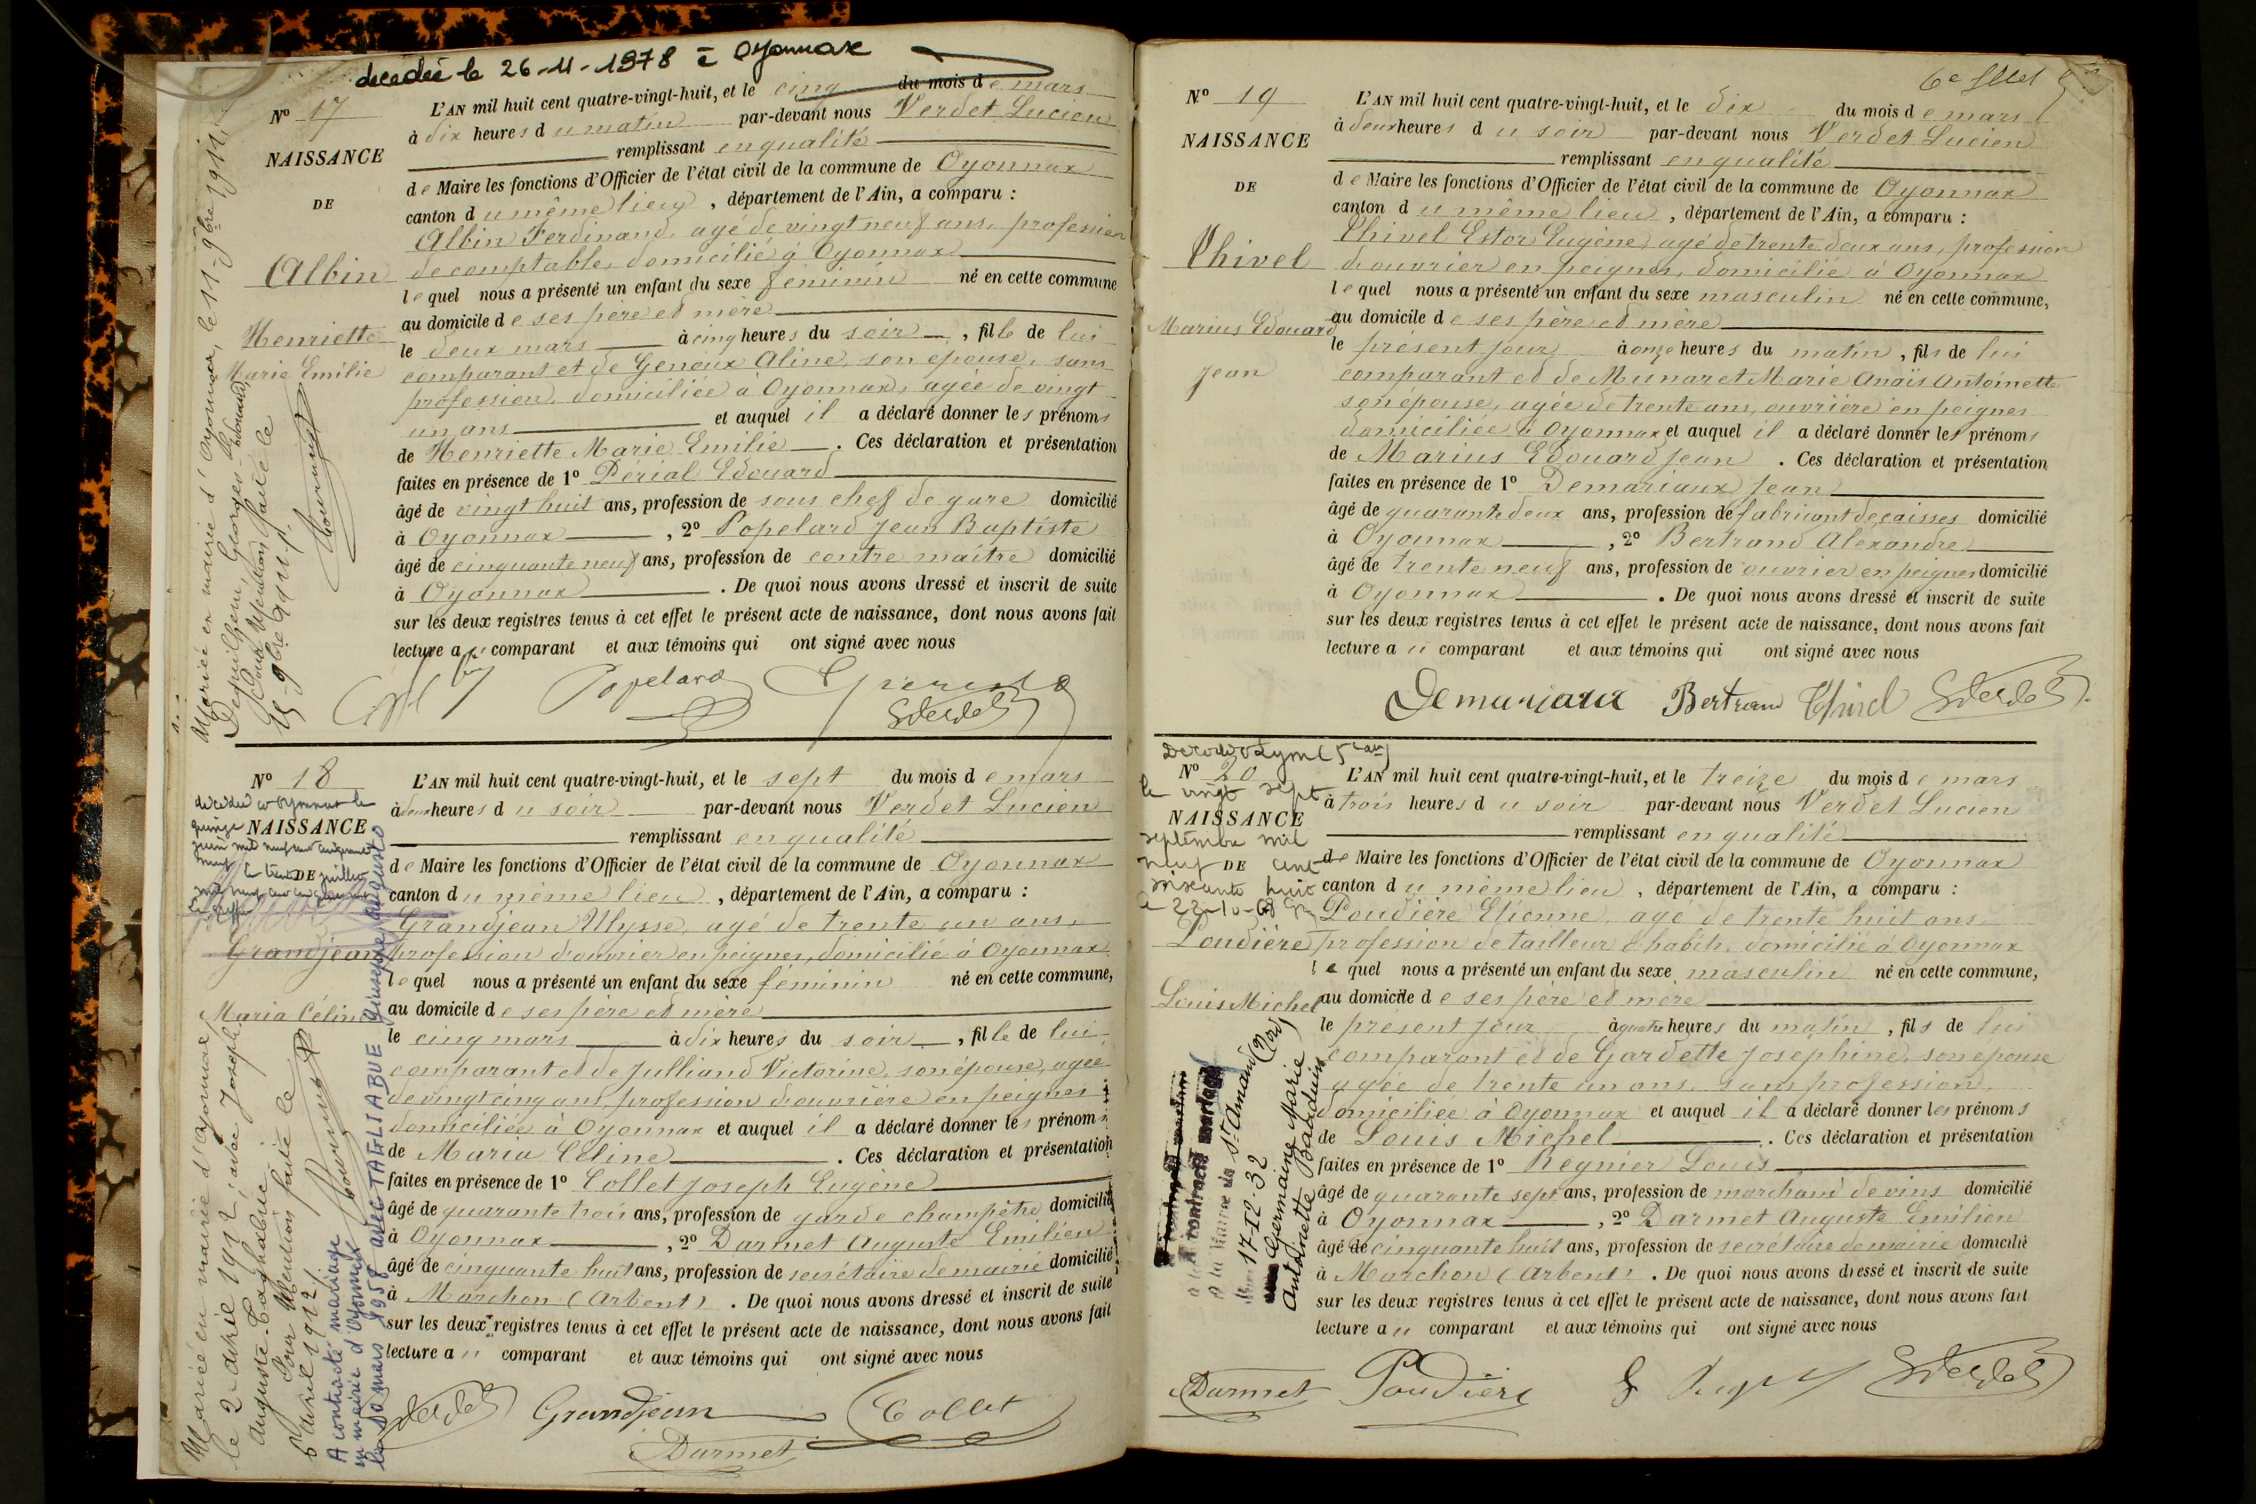 decedée le 26-11-1978 à Oyonnax
No 17
NAISSANCE
DE
Albin
Henriette
Marie Emilie
L'AN mil huit cent quatre-vingt-huit, et le cinq du mois de mars
à dix heures du matin par-devant nous Verdet Lucien
remplissant en qualité
de Maire les fonctions d'Officier de l'état civil de la commune de Oyonnax
canton du même lieu, département de l'Ain, a comparu :
Albin Ferdinand, agé de vingt neuf ans, profession
de comptable, domicilié à Oyonnax
lequel nous a présenté un enfant du sexe féminin né en cette commune
au domicile de ses père et mère
le deux mars à cinq heures du soir, fille de lui
comparant et de Genoux Aline, son épouse, sans
profession, domiciliée à Oyonnax, agée de vingt
un ans et auquel il a déclaré donner les prénoms
de Henriette Marie Emilie. Ces déclaration et présentation
faites en présence de 1º Périal Edouard
âgé de vingt huit ans, profession de sous chef de gare domicilié
à Oyonnax, 2º Popelard Jean Baptiste
âgé de cinquante neuf ans, profession de contre maître domicilié
à Oyonnax. De quoi nous avons dressé et inscrit de suite
sur les deux registres tenus à cet effet le présent acte de naissance, dont nous avons fait
lecture au comparant et aux témoins qui ont signé avec nous
Popelard
Verdet
Mariée en mairie d'Oyonnax, le 11-9bre 1911,
Georges-Edouard,
Pour Mention faite le
No 18
decedée à Oyonnax le
quinze
NAISSANCE
juin mil neuf cent cinquante
neuf
DE
Grandjean
Maria Céline
L'AN mil huit cent quatre-vingt-huit, et le sept du mois de mars
à deux heures du soir par-devant nous Verdet Lucien
remplissant en qualité
de Maire les fonctions d'Officier de l'état civil de la commune de Oyonnax
canton du même lieu, département de l'Ain, a comparu :
Grandjean Ulysse, agé de trente un ans,
profession d'ouvrier en peignes, domicilié à Oyonnax
lequel nous a présenté un enfant du sexe féminin né en cette commune,
au domicile de ses père et mère
le cinq mars à dix heures du soir, fille de lui
comparant et de Julliand Victorine, son épouse, agée
de vingt cinq ans, profession d'ouvrière en peignes
domiciliée à Oyonnax et auquel il a déclaré donner les prénoms
de Maria Céline. Ces déclaration et présentation
faites en présence de 1º Collet Joseph Eugène
âgé de quarante trois ans, profession de garde champêtre domicilié
à Oyonnax, 2º Darmet Auguste Emilien
âgé de cinquante huit ans, profession de secrétaire de mairie domicilié
à Marchon (Arbent). De quoi nous avons dressé et inscrit de suite
sur les deux registres tenus à cet effet le présent acte de naissance, dont nous avons fait
lecture au comparant et aux témoins qui ont signé avec nous
Verdet Grandjean Collet
Darmet
Mariée en mairie d'Oyonnax,
le 2 avril 1912, avec Joseph
Auguste Tagliabue
Pour Mention faite le
6 avril 1912
A contracté mariage
en mairie d'Oyonnax
le 10 mars 1958 avec TAGLIABUE Giuseppe Augusto
6e fllet
No 19
NAISSANCE
DE
Thivel
Marius Edouard
Jean
L'AN mil huit cent quatre-vingt-huit, et le dix du mois de mars
à deux heures du soir par-devant nous Verdet Lucien
remplissant en qualité
de Maire les fonctions d'Officier de l'état civil de la commune de Oyonnax
canton du même lieu, département de l'Ain, a comparu :
Thivel Estor Eugène, agé de trente deux ans, profession
d'ouvrier en peignes, domicilié à Oyonnax
lequel nous a présenté un enfant du sexe masculin né en cette commune,
au domicile de ses père et mère
le présent jour à onze heures du matin, fils de lui
comparant et de Munaret Marie Anaïs Antoinette
son épouse, agée de trente ans, ouvrière en peignes
domiciliée à Oyonnax et auquel il a déclaré donner les prénoms
de Marius Edouard Jean. Ces déclaration et présentation
faites en présence de 1º Demariaux Jean
âgé de quarante deux ans, profession de fabricant de caisses domicilié
à Oyonnax, 2º Bertrand Alexandre
âgé de trente neuf ans, profession de ouvrier en peignes domicilié
à Oyonnax. De quoi nous avons dressé et inscrit de suite
sur les deux registres tenus à cet effet le présent acte de naissance, dont nous avons fait
lecture au comparant et aux témoins qui ont signé avec nous
Demariaux Bertrand Thivel Verdet
No 20
le vingt sept
NAISSANCE
septembre mil
neuf DE cent
soixante huit
le 22-10-68
Poudière
Louis Michel
L'AN mil huit cent quatre-vingt-huit, et le treize du mois de mars
à trois heures du soir par-devant nous Verdet Lucien
remplissant en qualité
de Maire les fonctions d'Officier de l'état civil de la commune de Oyonnax
canton du même lieu, département de l'Ain, a comparu :
Poudière Etienne, agé de trente huit ans,
profession de tailleur d'habits, domicilié à Oyonnax
lequel nous a présenté un enfant du sexe masculin né en cette commune,
au domicile de ses père et mère
le présent jour à quatre heures du matin, fils de lui
comparant et de Gardette Josephine, son épouse
agée de trente un ans, sans profession,
domiciliée à Oyonnax et auquel il a déclaré donner les prénoms
de Louis Michel. Ces déclaration et présentation
faites en présence de 1º Regnier Louis
âgé de quarante sept ans, profession de marchand de vins domicilié
à Oyonnax, 2º Darmet Auguste Emilien
âgé de cinquante huit ans, profession de secrétaire de mairie domicilié
à Marchon (Arbent). De quoi nous avons dressé et inscrit de suite
sur les deux registres tenus à cet effet le présent acte de naissance, dont nous avons fait
lecture au comparant et aux témoins qui ont signé avec nous
Darmet Poudière Verdet
a contracté mariage
à la Mairie de St Amand (Nord)
le 17-12-32
avec Germaine Marie
Antoinette Bauduin